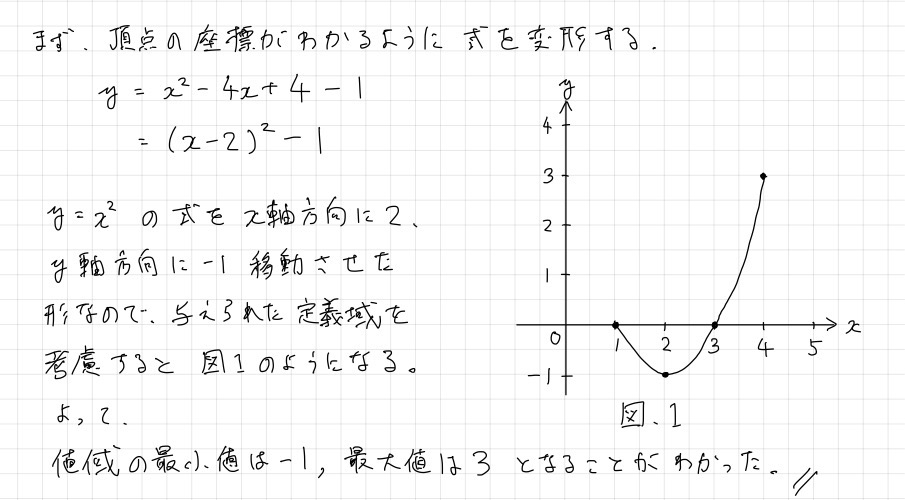 まず、頂点の座標がわかるように 式を変形する.
y = x² - 4x + 4 - 1
= (x-2)² - 1
y = x² の式を x軸方向に2、
y軸方向に-1 移動させた
形なので、与えられた定義域を
考慮すると 図1のようになる。
よって、
値域の最小値は-1, 最大値は3 となることがわかった。//
y
4
3
2
1
0
1
2
3
4
5
x
-1
図.1